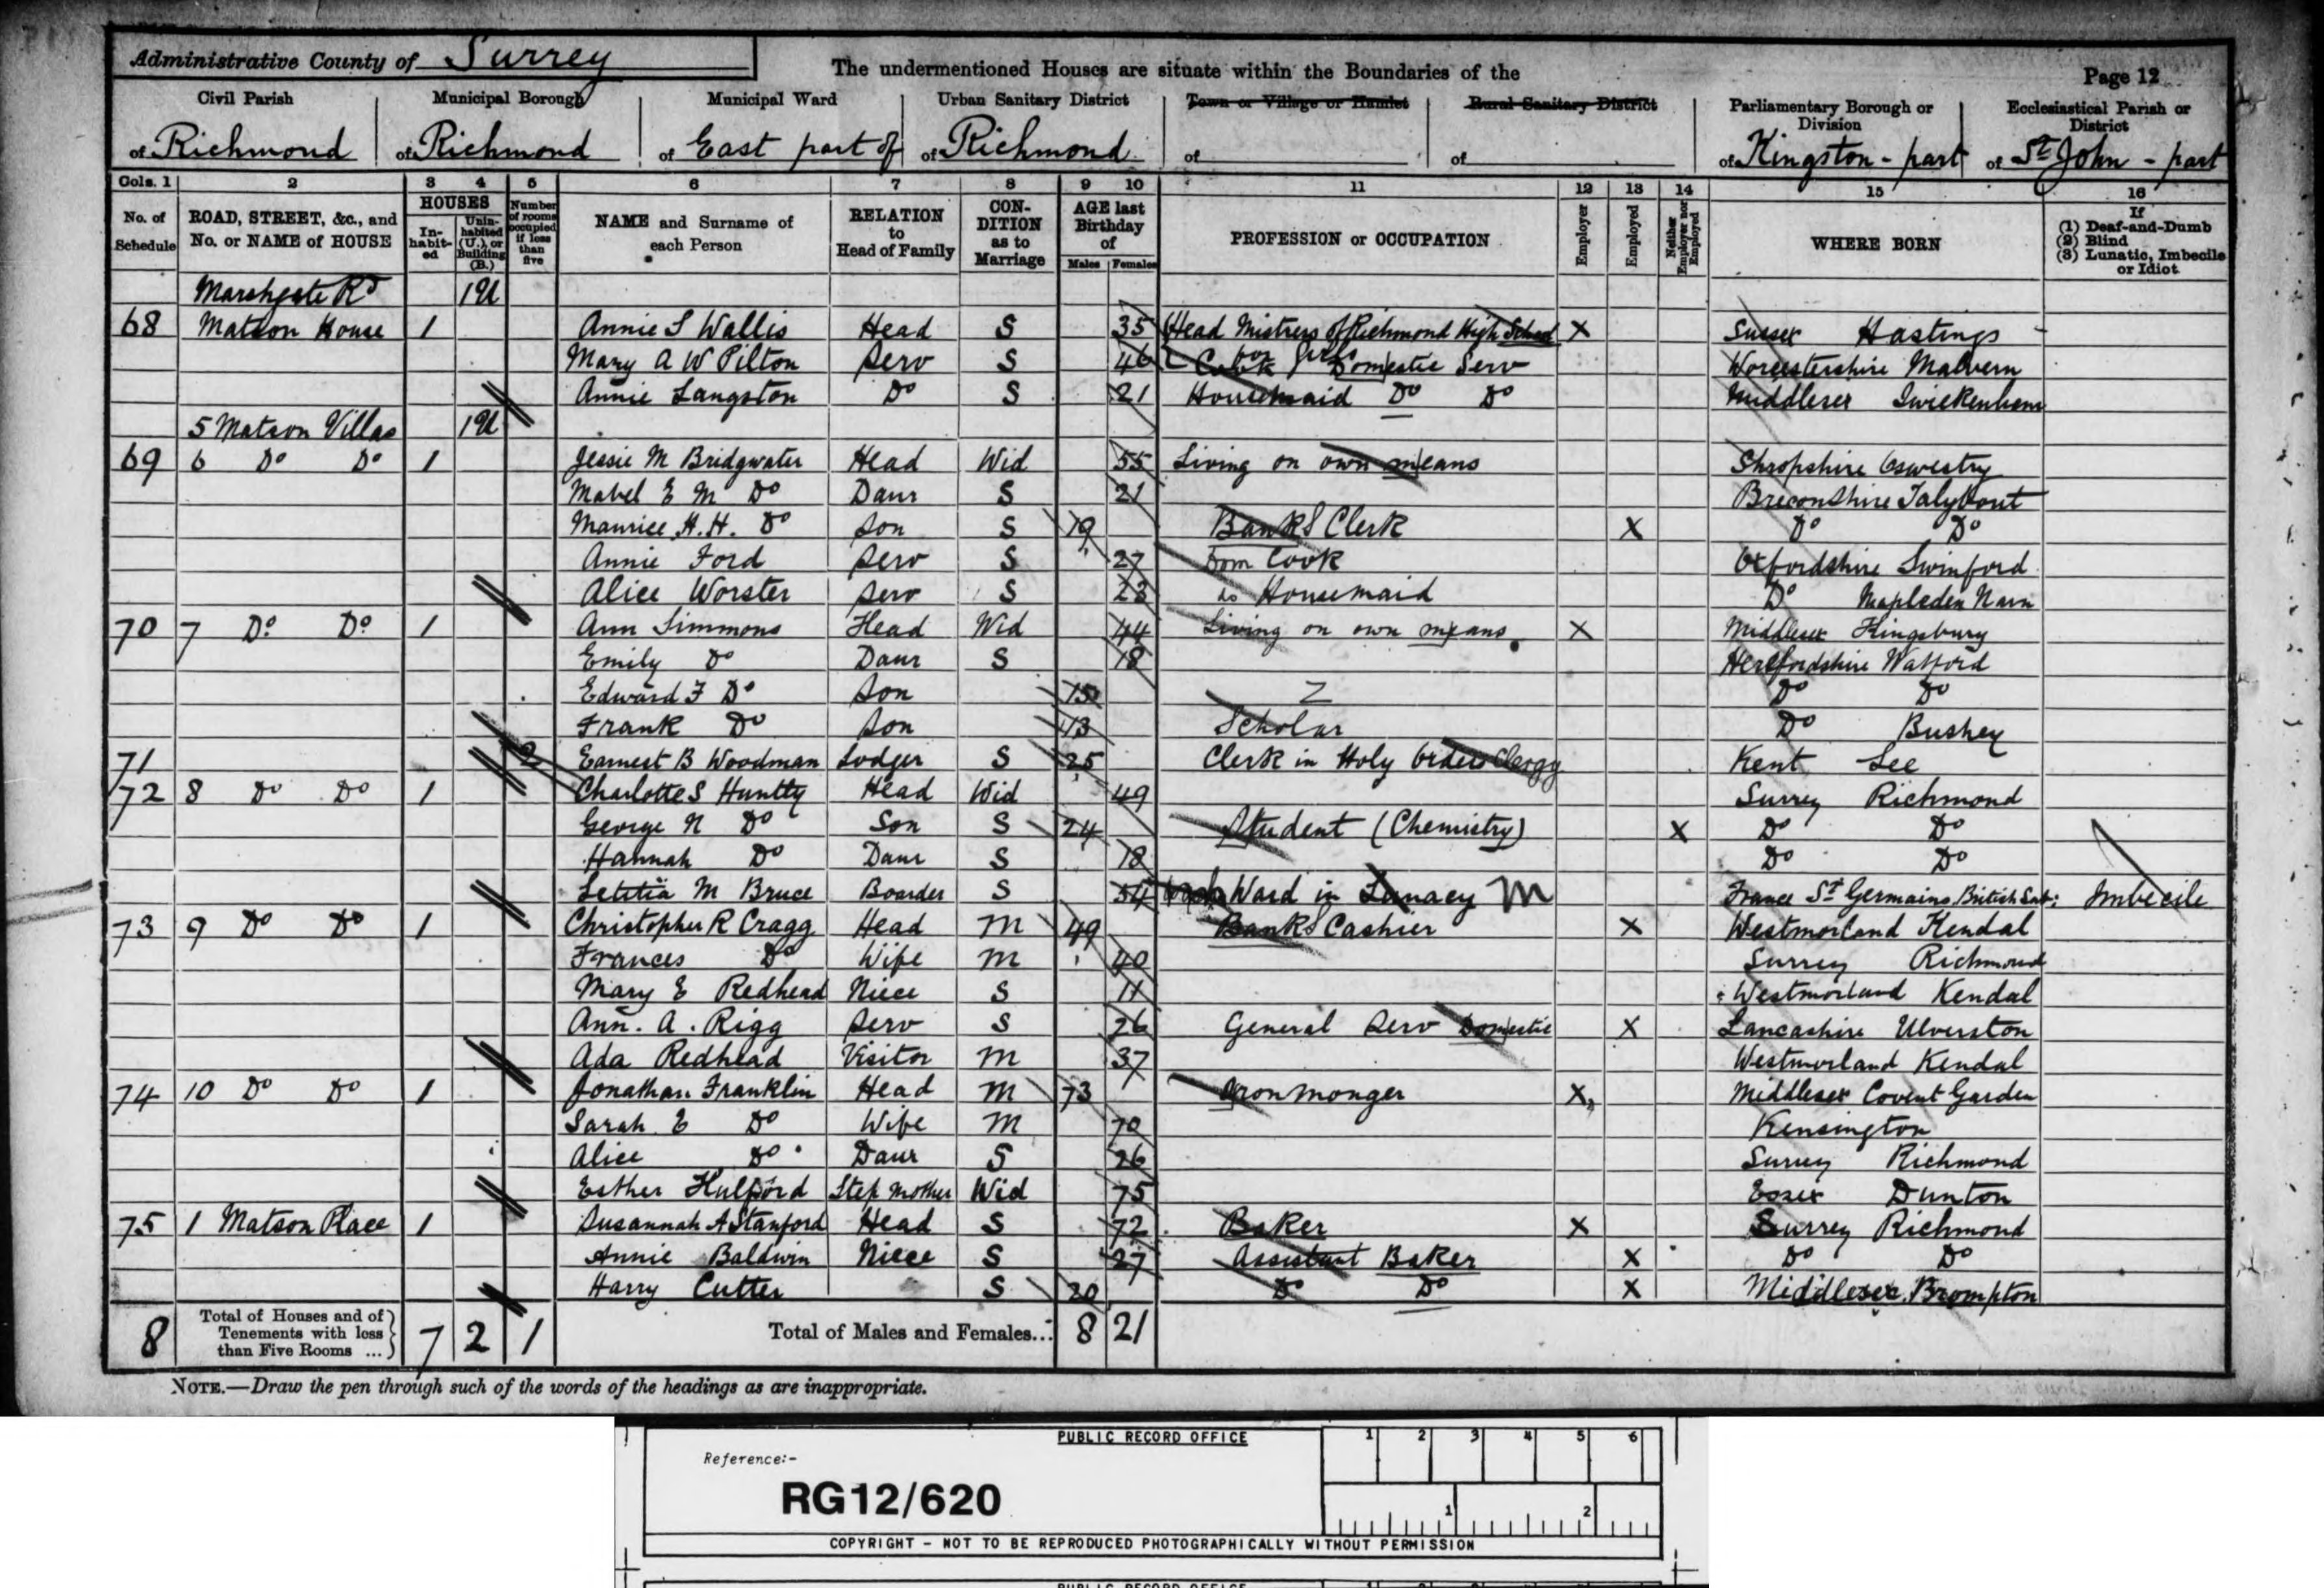 Administrative County of Surrey
The undermentioned Houses are situate within the Boundaries of the
Page 12
Civil Parish of Richmond
Municipal Borough of Richmond
Municipal Ward of East part of
Urban Sanitary District of Richmond
Town or Village or Hamlet of
Rural Sanitary District of
Parliamentary Borough or Division of Kingston - part
Ecclesiastical Parish or District of St John - part
Cols. 1 2 3 4 5 6 7 8 9 10 11 12 13 14 15 16
No. of Schedule
ROAD, STREET, &c., and No. or NAME of HOUSE
HOUSES
In-habit-ed
Unin-habited (U.), or Building (B.)
Number of rooms occupied if less than five
NAME and Surname of each Person
RELATION to Head of Family
CON-DITION as to Marriage
AGE last Birthday of
Males Females
PROFESSION or OCCUPATION
Employer
Employed
Neither Employer nor Employed
WHERE BORN
If
(1) Deaf-and-Dumb
(2) Blind
(3) Lunatic, Imbecile or Idiot
Marshgate Rd 1U
68 Matson House 1 Annie S Wallis Head S 35 Head Mistress of Richmond High School X Sussex Hastings
for Girls
Mary A W Pilton Serv S 46 Cook Domestic Serv Worcestershire Malvern
Annie Langston Do S 21 Housemaid Do Do Middlesex Twickenham
5 Matson Villas 1U
69 6 Do Do 1 Jessie M Bridgwater Head Wid 55 Living on own means Shropshire Oswestry
Mabel E M Do Daur S 21 Breconshire Talybont
Maurice H. H. Do Son S 19 Banks Clerk X Do Do
Annie Ford Serv S 27 Dom Cook Oxfordshire Swinford
Alice Worster Serv S 23 Do Housemaid Do
70 7 Do Do 1 Ann Simmons Head Wid 44 Living on own means X Middlesex Kingsbury
Emily Do Daur S 18 Hertfordshire Watford
Edward F Do Son 15 Do Do
Frank Do Son 13 Scholar Do Bushey
71 2 Earnest B Woodman Lodger S 25 Clerk in Holy Orders Clergy Kent Lee
72 8 Do Do 1 Charlotte S Huntly Head Wid 49 Surrey Richmond
George N Do Son S 24 Student (Chemistry) X Do Do
Hannah Do Daur S 18 Do Do
Letitia M Bruce Boarder S 54 Ward in Lunacy M France St Germains British Sub: Imbecile
73 9 Do Do 1 Christopher R Cragg Head M 49 Banks Cashier X Westmorland Kendal
Frances Do Wife M 40 Surrey Richmond
Mary E Redhead Niece S 11 Westmorland Kendal
Ann. A. Rigg Serv S 26 General Serv Domestic X Lancashire Ulverston
Ada Redhead Visitor M 37 Westmorland Kendal
74 10 Do Do 1 Jonathan Franklin Head M 73 Ironmonger X Middlesex Covent Garden
Sarah E Do Wife M 70 Kensington
Alice Do Daur S 26 Surrey Richmond
Esther Hulford Step Mother Wid 75 Essex Dunton
75 1 Matson Place 1 Susannah A Stanford Head S 72 Baker X Surrey Richmond
Annie Baldwin Niece S 27 Assistant Baker X Do Do
Harry Cutter S 20 Do Do X Middlesex Brompton
8 Total of Houses and of Tenements with less than Five Rooms ... 7 2 1 Total of Males and Females... 8 21
NOTE.—Draw the pen through such of the words of the headings as are inappropriate.
PUBLIC RECORD OFFICE
1 2 3 4 5 6
Reference:-
RG12/620
1 2
COPYRIGHT - NOT TO BE REPRODUCED PHOTOGRAPHICALLY WITHOUT PERMISSION
PUBLIC RECORD OFFICE